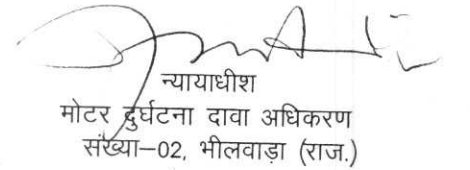 न्यायाधीश
मोटर दुर्घटना दावा अधिकरण
संख्या–02, भीलवाड़ा (राज.)